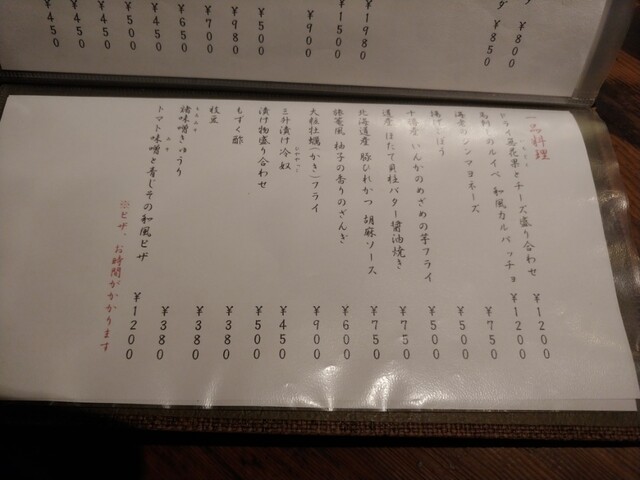 ¥800
¥850
¥1980
¥1500
¥900
¥500
¥980
¥700
¥650
¥450
¥500
¥450
¥450
¥450
一品料理
ドライ無花果とチーズ盛り合わせ ¥1200
馬刺しのルイベ 和風カルパッチョ ¥1200
海老の マヨネーズ ¥750
揚げごぼう ¥500
十勝産 いんかのめざめの芋フライ ¥500
道産 ほたて貝柱バター醤油焼き ¥750
北海道産 豚ひれかつ 胡麻ソース ¥750
旅篭風 柚子の香りのざんぎ ¥600
大粒牡蠣(かき)フライ ¥900
三升漬け冷奴 ¥450
漬け物盛り合わせ ¥500
もずく酢 ¥380
枝豆 ¥380
諸味噌きゅうり ¥380
トマト味噌と青じその和風ピザ ¥1200
※ピザ、お時間がかかります